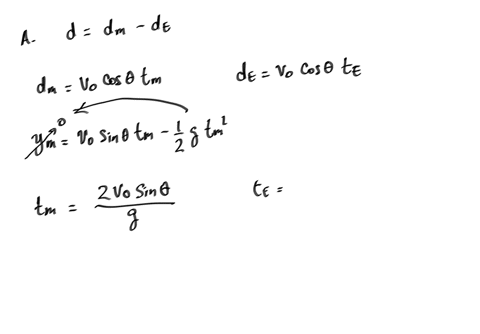 A. d = dm - dE
dm = v₀ cosθ tm    dE = v₀ cosθ tE
ym⁰ = v₀ sinθ tm - 1/2 g tm²
tm = 2v₀ sinθ / g    tE =